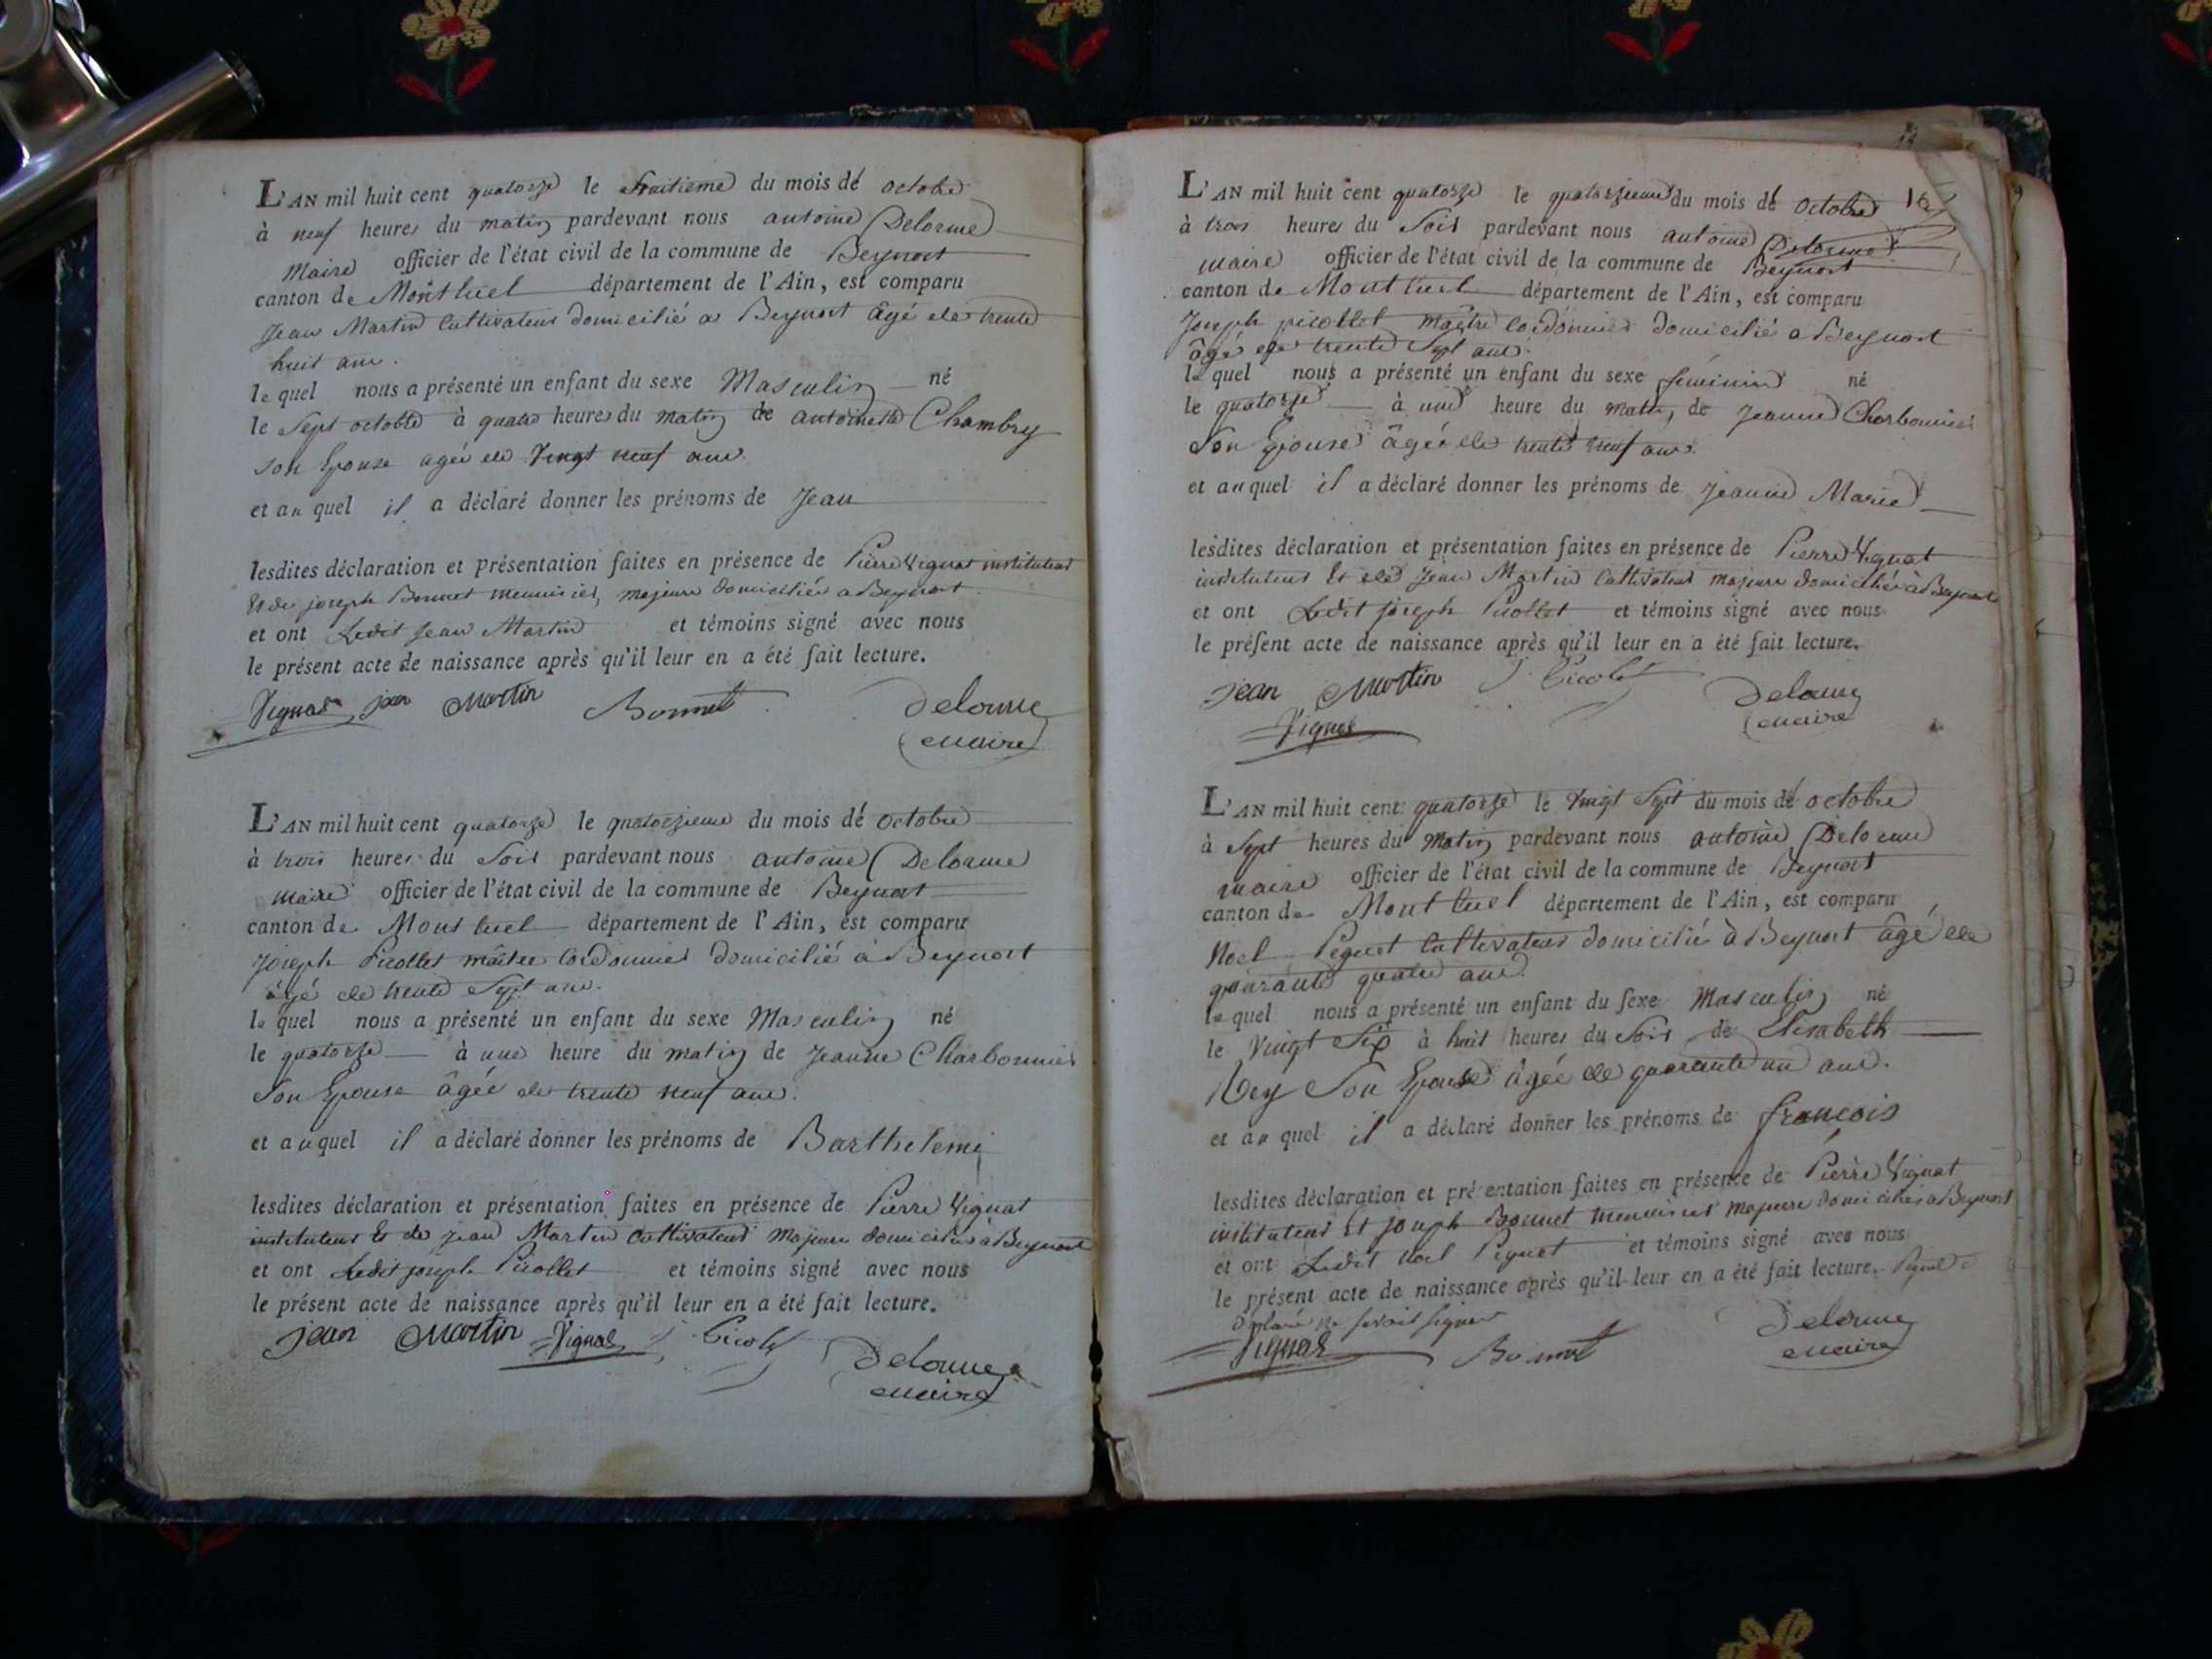 L'AN mil huit cent quatorze le huitieme du mois de octobre
à neuf heures du matin pardevant nous antoine Delorme
Maire officier de l'état civil de la commune de Beynost
canton de Montluel département de l'Ain, est comparu
Jean Martin Cultivateur domicilié a Beynost âgé de trente
huit ans.
lequel nous a présenté un enfant du sexe Masculin né
le Sept octobre à quatre heures du matin de antoinette Chambry
son Epouse agée de Vingt neuf ans.
et auquel il a déclaré donner les prénoms de Jean
lesdites déclaration et présentation faites en présence de Pierre Vignat instituteur
Et de joseph Bonnet menuisier, majeurs domiciliés a Beynost.
et ont Ledit Jean Martin et témoins signé avec nous
le présent acte de naissance après qu'il leur en a été fait lecture.
Vignat jean Martin Bonnet Delorme
maire
L'AN mil huit cent quatorze le quatorzieme du mois de octobre
à trois heures du Soir pardevant nous antoine Delorme
maire officier de l'état civil de la commune de Beynost
canton de Montluel département de l'Ain, est comparu
Joseph Picollet maître Cordonnier domicilié à Beynost
âgé de trente Sept ans.
lequel nous a présenté un enfant du sexe Masculin né
le quatorze à une heure du matin de Jeanne Charbonnier
Son Epouse âgée de trente neuf ans.
et auquel il a déclaré donner les prénoms de Barthelemi
lesdites déclaration et présentation faites en présence de Pierre Vignat
instituteur Et de jean Martin Cultivateur majeurs domiciliés à Beynost
et ont Ledit joseph Picollet et témoins signé avec nous
le présent acte de naissance après qu'il leur en a été fait lecture.
jean Martin Vignat J. Picolet Delorme
maire
L'AN mil huit cent quatorze le quatorzieme du mois de octobre 16
à trois heures du Soir pardevant nous antoine Delorme
maire officier de l'état civil de la commune de Beynost
canton de Montluel département de l'Ain, est comparu
Joseph picollet maître Cordonnier domicilié a Beynost
âgé de trente Sept ans.
lequel nous a présenté un enfant du sexe féminin né
le quatorze à une heure du matin, de Jeanne Charbonnier
Son Epouse âgée de trente neuf ans.
et auquel il a déclaré donner les prénoms de Jeanne Marie
lesdites déclaration et présentation faites en présence de Pierre Vignat
instituteur Et de Jean Martin Cultivateur majeurs domiciliés à Beynost
et ont Ledit joseph Picollet et témoins signé avec nous
le présent acte de naissance après qu'il leur en a été fait lecture.
jean Martin J. Picolet Delorme
Vignat maire
L'AN mil huit cent quatorze le Vingt Sept du mois de octobre
à Sept heures du Matin pardevant nous antoine Delorme
maire officier de l'état civil de la commune de Beynost
canton de Montluel département de l'Ain, est comparu
Noel Péguet Cultivateur domicilié à Beynost âgé de
quarante quatre ans.
lequel nous a présenté un enfant du sexe Masculin né
le Vingt Six à huit heures du Soir de Elisabeth
Rey Son Epouse âgée de quarante un ans.
et auquel il a déclaré donner les prénoms de françois
lesdites déclaration et présentation faites en présence de Pierre Vignat
instituteur Et joseph Bonnet menuisier majeurs domiciliés a Beynost
et ont Ledit Noel Péguet et témoins signé avec nous
le présent acte de naissance après qu'il leur en a été fait lecture. Péguet a
déclaré ne savoir signer
Vignat Bonnet Delorme
maire